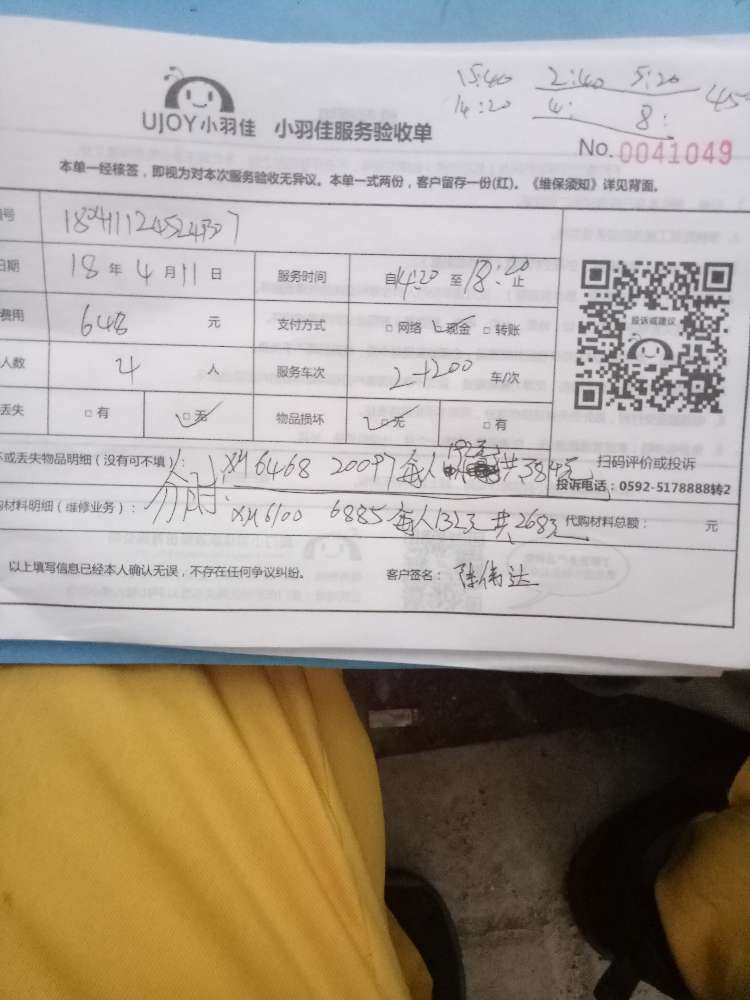 15:40 2:40 5:20
14:20 4: 8: 45
UJOY小羽佳 小羽佳服务验收单
No. 0041049
本单一经核签，即视为对本次服务验收无异议。本单一式两份，客户留存一份(红)。《维保须知》详见背面。
号
日期 18年4月11日 服务时间 自14:20至18:20止
费用 648 元 支付方式 □网络 ☑现金 □转账
人数 4 人 服务车次 2+200 车/次
丢失 □有 ☑无 物品损坏 ☑无 □有
投诉或建议
扫码评价或投诉
投诉电话：0592-5178888转2
坏或丢失物品明细(没有可不填)： XM6468 20097 每人192元 共384元
购材料明细(维修业务)： XM6100 6885 每人132元 共268元 代购材料总额： 元
以上填写信息已经本人确认无误，不存在任何争议纠纷。 客户签名： 陈伟达